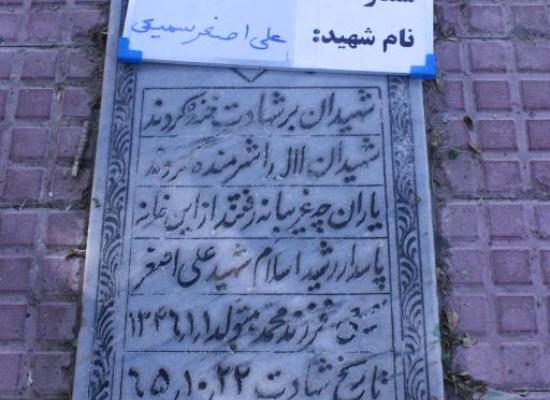 نام شهید: علی اصغر سمیعی
شهیدان بر شهادت خنده کردند
شهیدان لاله را شرمنده کردند
یاران چه غریبانه رفتند از این خانه
پاسدار رشید اسلام شهید علی اصغر
سمیعی فرزند محمد متولد ۱۳۴۶،۱،۱
تاریخ شهادت ۶۵،۱۰،۲۲